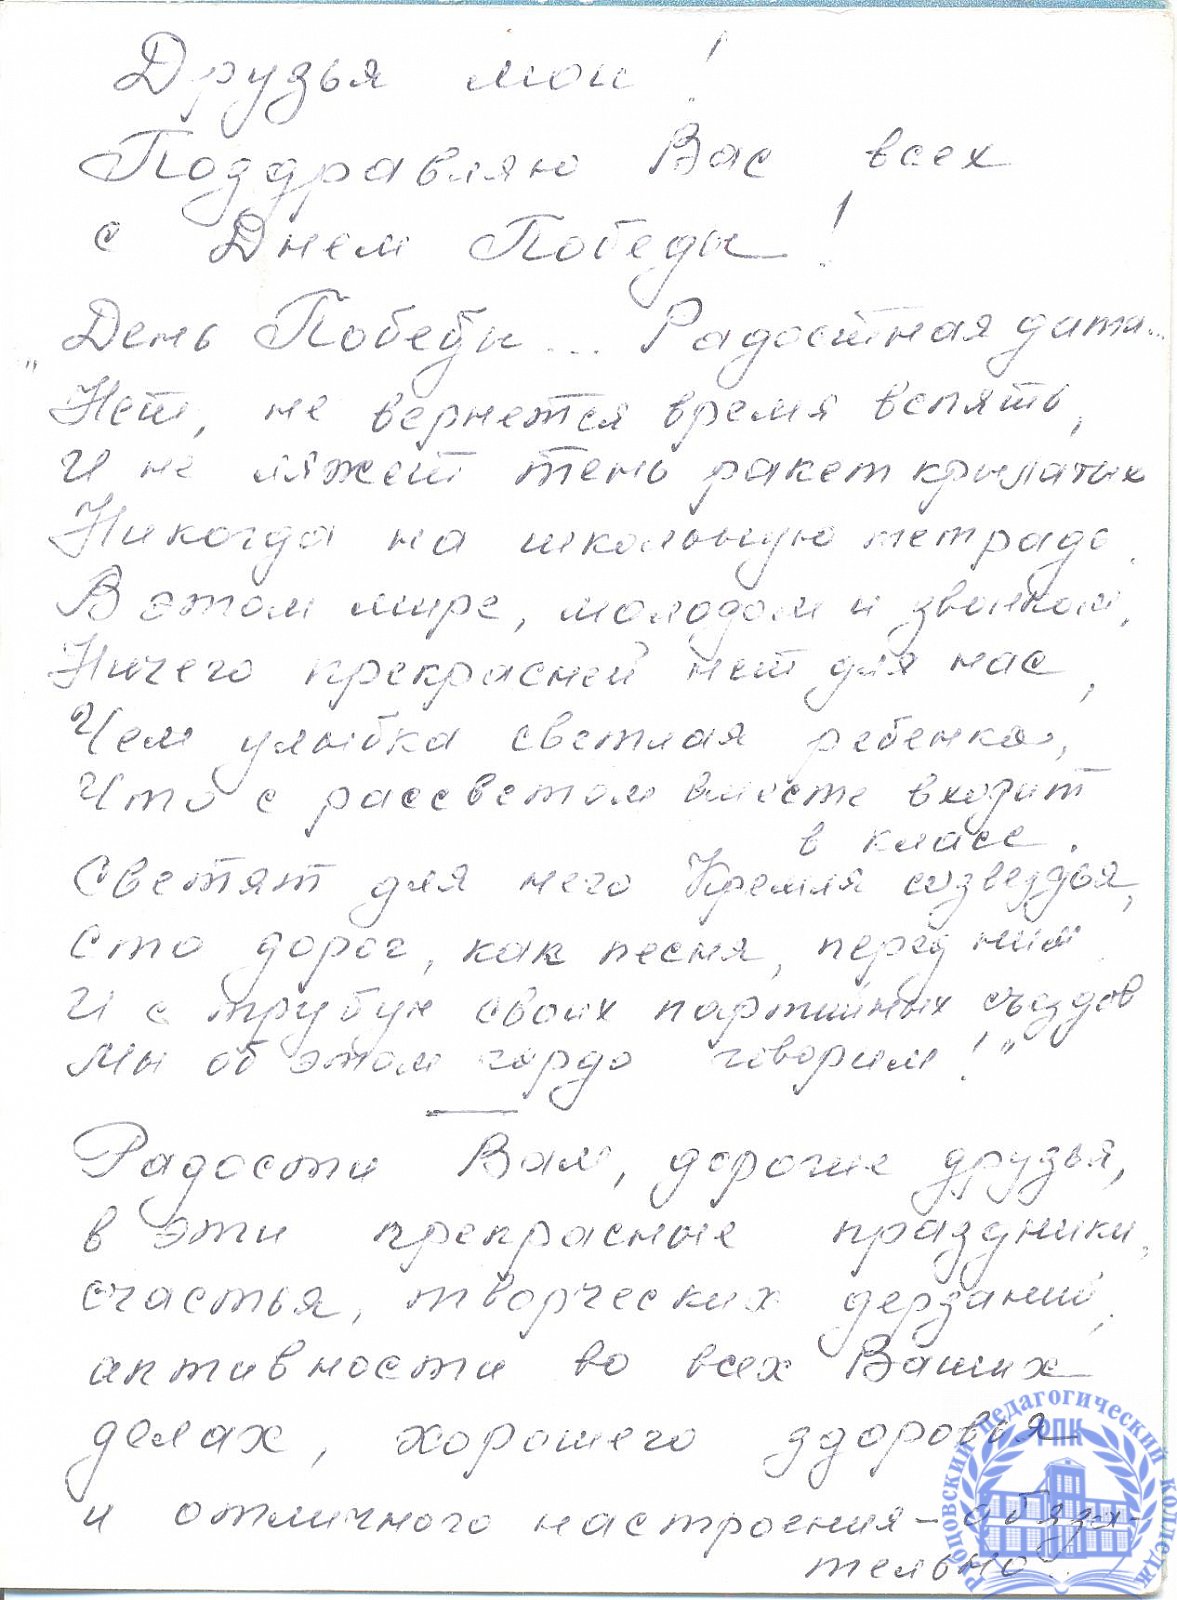 Друзья мои!
Поздравляю Вас всех
с Днем Победы!
„День Победы... Радостная дата...
Нет, не вернется время вспять,
И не ляжет тень ракет крылатых
Никогда на школьную тетрадь.
В этом мире, молодом и звонком,
Ничего прекрасней нет для нас,
Чем улыбка светлая ребенка,
Что с рассветом вместе входит
в класс.
Светят для него Кремля созвездья,
Сто дорог, как песня, перед ним.
И с трибун своих партийных съездов
Мы об этом гордо говорим!"
Радости Вам, дорогие друзья,
в эти прекрасные праздники,
счастья, творческих дерзаний,
активности во всех Ваших
делах, хорошего здоровья
и отличного настроения – обяза-
тельно.
педагогический колледж
РПК